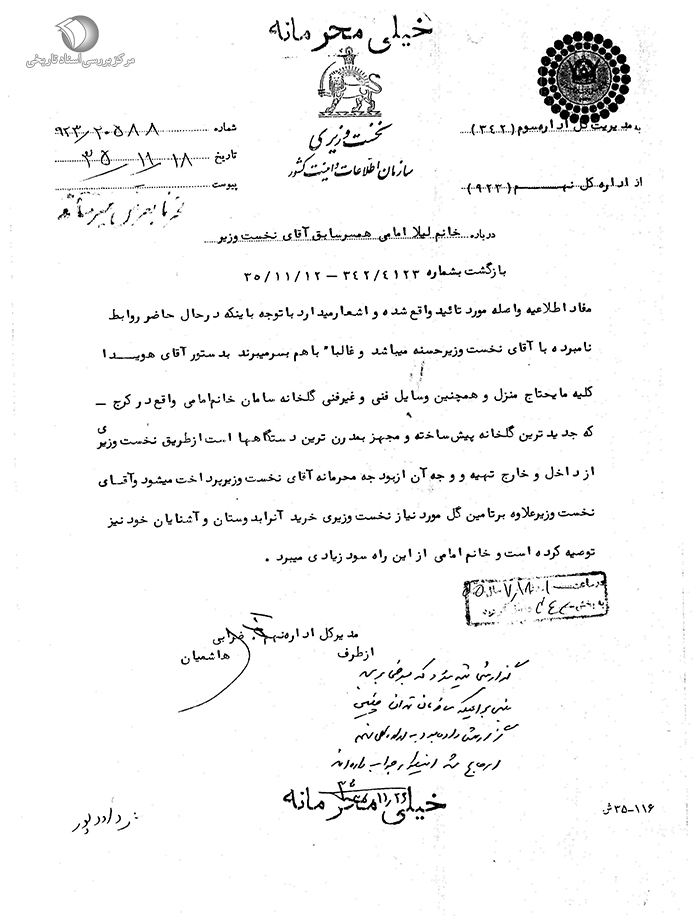 خیلی محرمانه
مرکز بررسی اسناد تاریخی
نخست وزیری
سازمان اطلاعات و امنیت کشور
به مدیریت کل اداره سوم (۳۴۲)
از اداره کل نهم (۹۲۳)
شماره ۹۲۳/۲۰۵۸۸
تاریخ ۳۵/۱۱/۱۸
پیوست
درباره خانم لیلا امامی همسر سابق آقای نخست وزیر
بازگشت بشماره ۳۴۲/۴۱۲۳ – ۳۵/۱۱/۱۲
مفاد اطلاعیه واصله مورد تائید واقع شده و اشعار میدارد با توجه باینکه در حال حاضر روابط
نامبرده با آقای نخست وزیر حسنه میباشد و غالباً با هم بسر میبرند بدستور آقای هویدا
کلیه مایحتاج منزل و همچنین وسایل فنی و غیر فنی گلخانه سامان خانم امامی واقع در کرج –
که جدید ترین گلخانه پیش ساخته و مجهز بمدرن ترین دستگاهها است از طریق نخست وزیری
از داخل و خارج تهیه و وجه آن از بودجه محرمانه آقای نخست وزیر پرداخت میشود و آقای
نخست وزیر علاوه بر تامین گل مورد نیاز نخست وزیری خرید آنرا بدوستان و آشنایان خود نیز
توصیه کرده است و خانم امامی از این راه سود زیادی میبرد .
مدیر کل اداره نهم . ضرابی
از طرف هاشمیان
خیلی محرمانه
۳۵-۱۱۶ ش